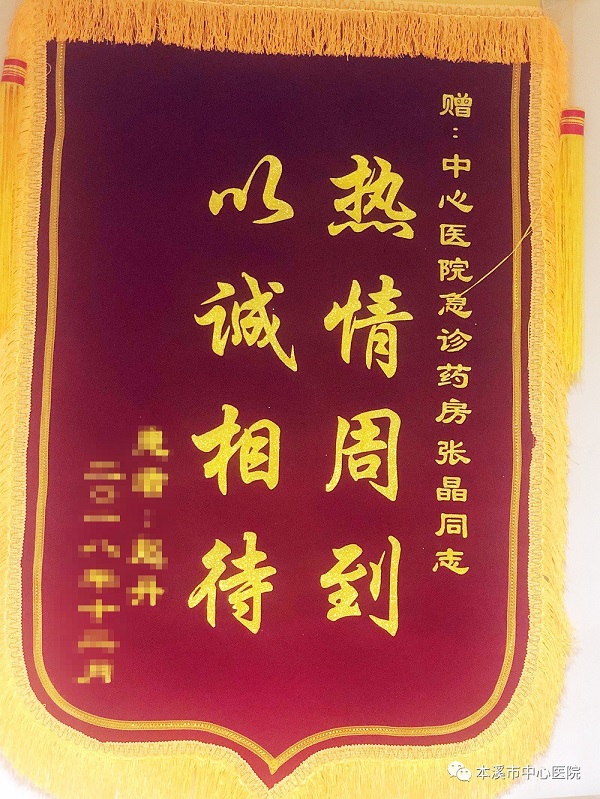 赠：中心医院急诊药房张晶同志
热情周到
以诚相待
二〇一八年十二月
本溪市中心医院